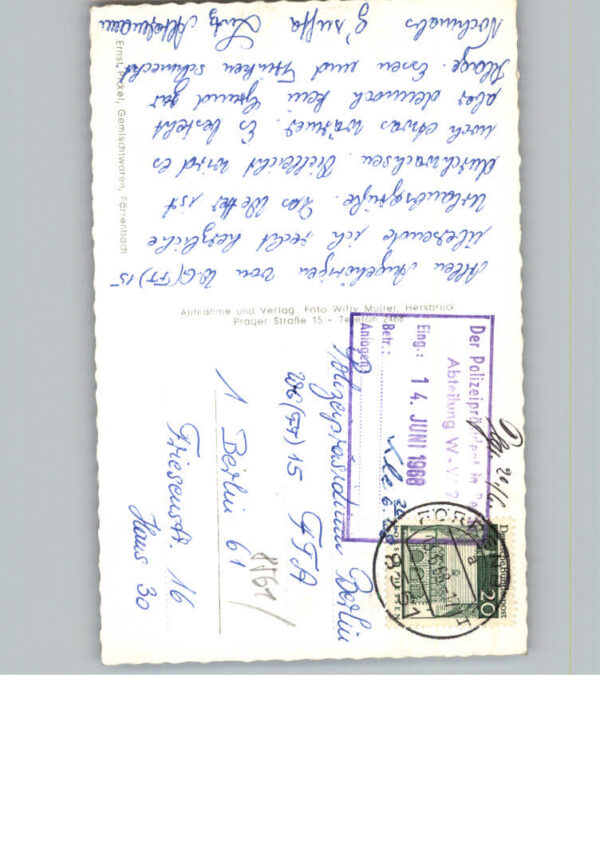 Allen Angehörigen von WG(FF)15
übersende ich recht herzliche
Urlaubsgrüße. Das Wetter ist
durchwachsen. Vielleicht wird es
noch etwas wärmer. Es besteht
aber dennoch kein Grund zur
Klage. Essen und Trinken schmeckt
Nochmals G'suffa
Ernst Pickel, Gemischtwaren, Förrenbach
Aufnahme und Verlag Foto Willy Müller, Hersbruck
Prager Straße 15 - Telefon 2468
Der Polizeipräsident in
Abteilung W-V 2
Eing.: 14. JUNI 1968
Betr.:
Anlagen
20
Deutsche Bundespost
8561
Polizeipräsidium Berlin
(FF) 15 FFA
1 Berlin 61
Friesenstr. 16
Haus 30
8561